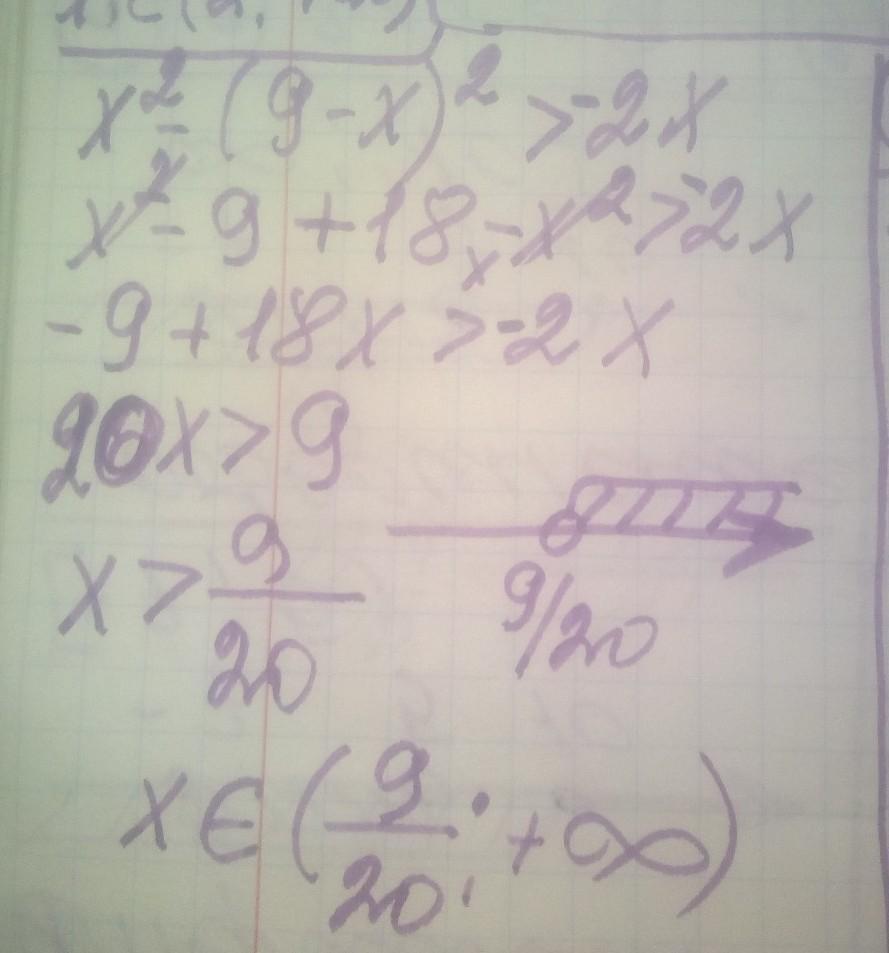 x² - (9-x)² > -2x
x² - 9 + 18x - x² > -2x
-9 + 18x > -2x
20x > 9
x > 9/20
9/20
x ∈ (9/20; +∞)